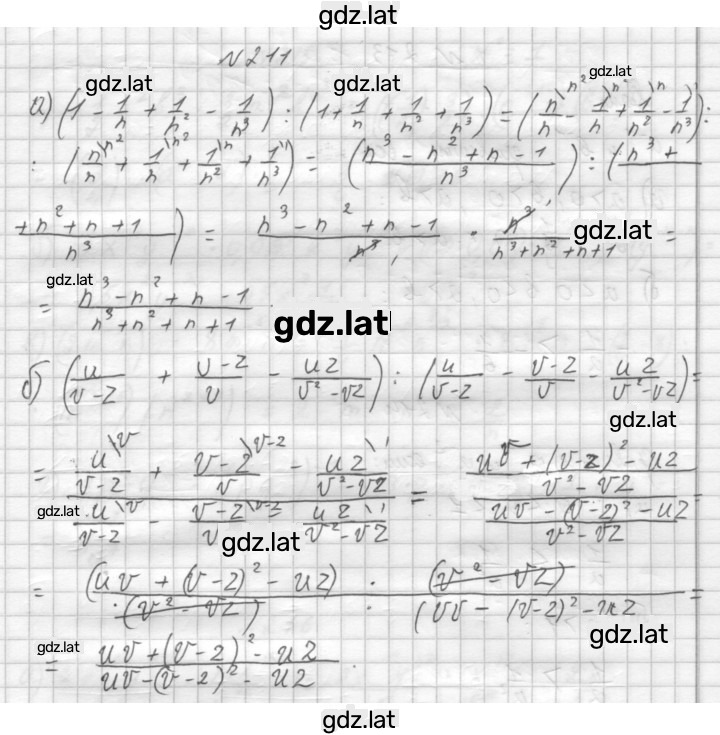 gdz.lat
N 211
gdz.lat gdz.lat gdz.lat
а) (1 - 1/n + 1/n² - 1/n³) : (1 + 1/n + 1/n² + 1/n³) = (n/n \n² - 1/n \n² + 1/n² \n - 1/n³) :
: (n/n \n² + 1/n \n² + 1/n² \n + 1/n³ \1) = ((n³ - n² + n - 1)/n³) : (n³ +
+ n² + n + 1)/n³) = (n³ - n² + n - 1)/n³ · n³/(n³ + n² + n + 1) =
gdz.lat
gdz.lat
= (n³ - n² + n - 1)/(n³ + n² + n + 1)
gdz.lat
б) (u/(v-z) + (v-z)/v - uz/(v² - vz)) : (u/(v-z) - (v-z)/v - uz/(v² - vz)) =
gdz.lat
= (u/(v-z) \v + (v-z)/v \v-z - uz/(v² - vz) \1)/(u/(v-z) \v - (v-z)/v \v-z - uz/(v² - vz) \1) = ((uv + (v-z)² - uz)/(v² - vz))/((uv - (v-z)² - uz)/(v² - vz)) =
gdz.lat
gdz.lat
= (uv + (v-z)² - uz)/(v² - vz) · (v² - vz)/(uv - (v-z)² - uz) =
gdz.lat
gdz.lat
= (uv + (v-z)² - uz)/(uv - (v-z)² - uz)
gdz.lat